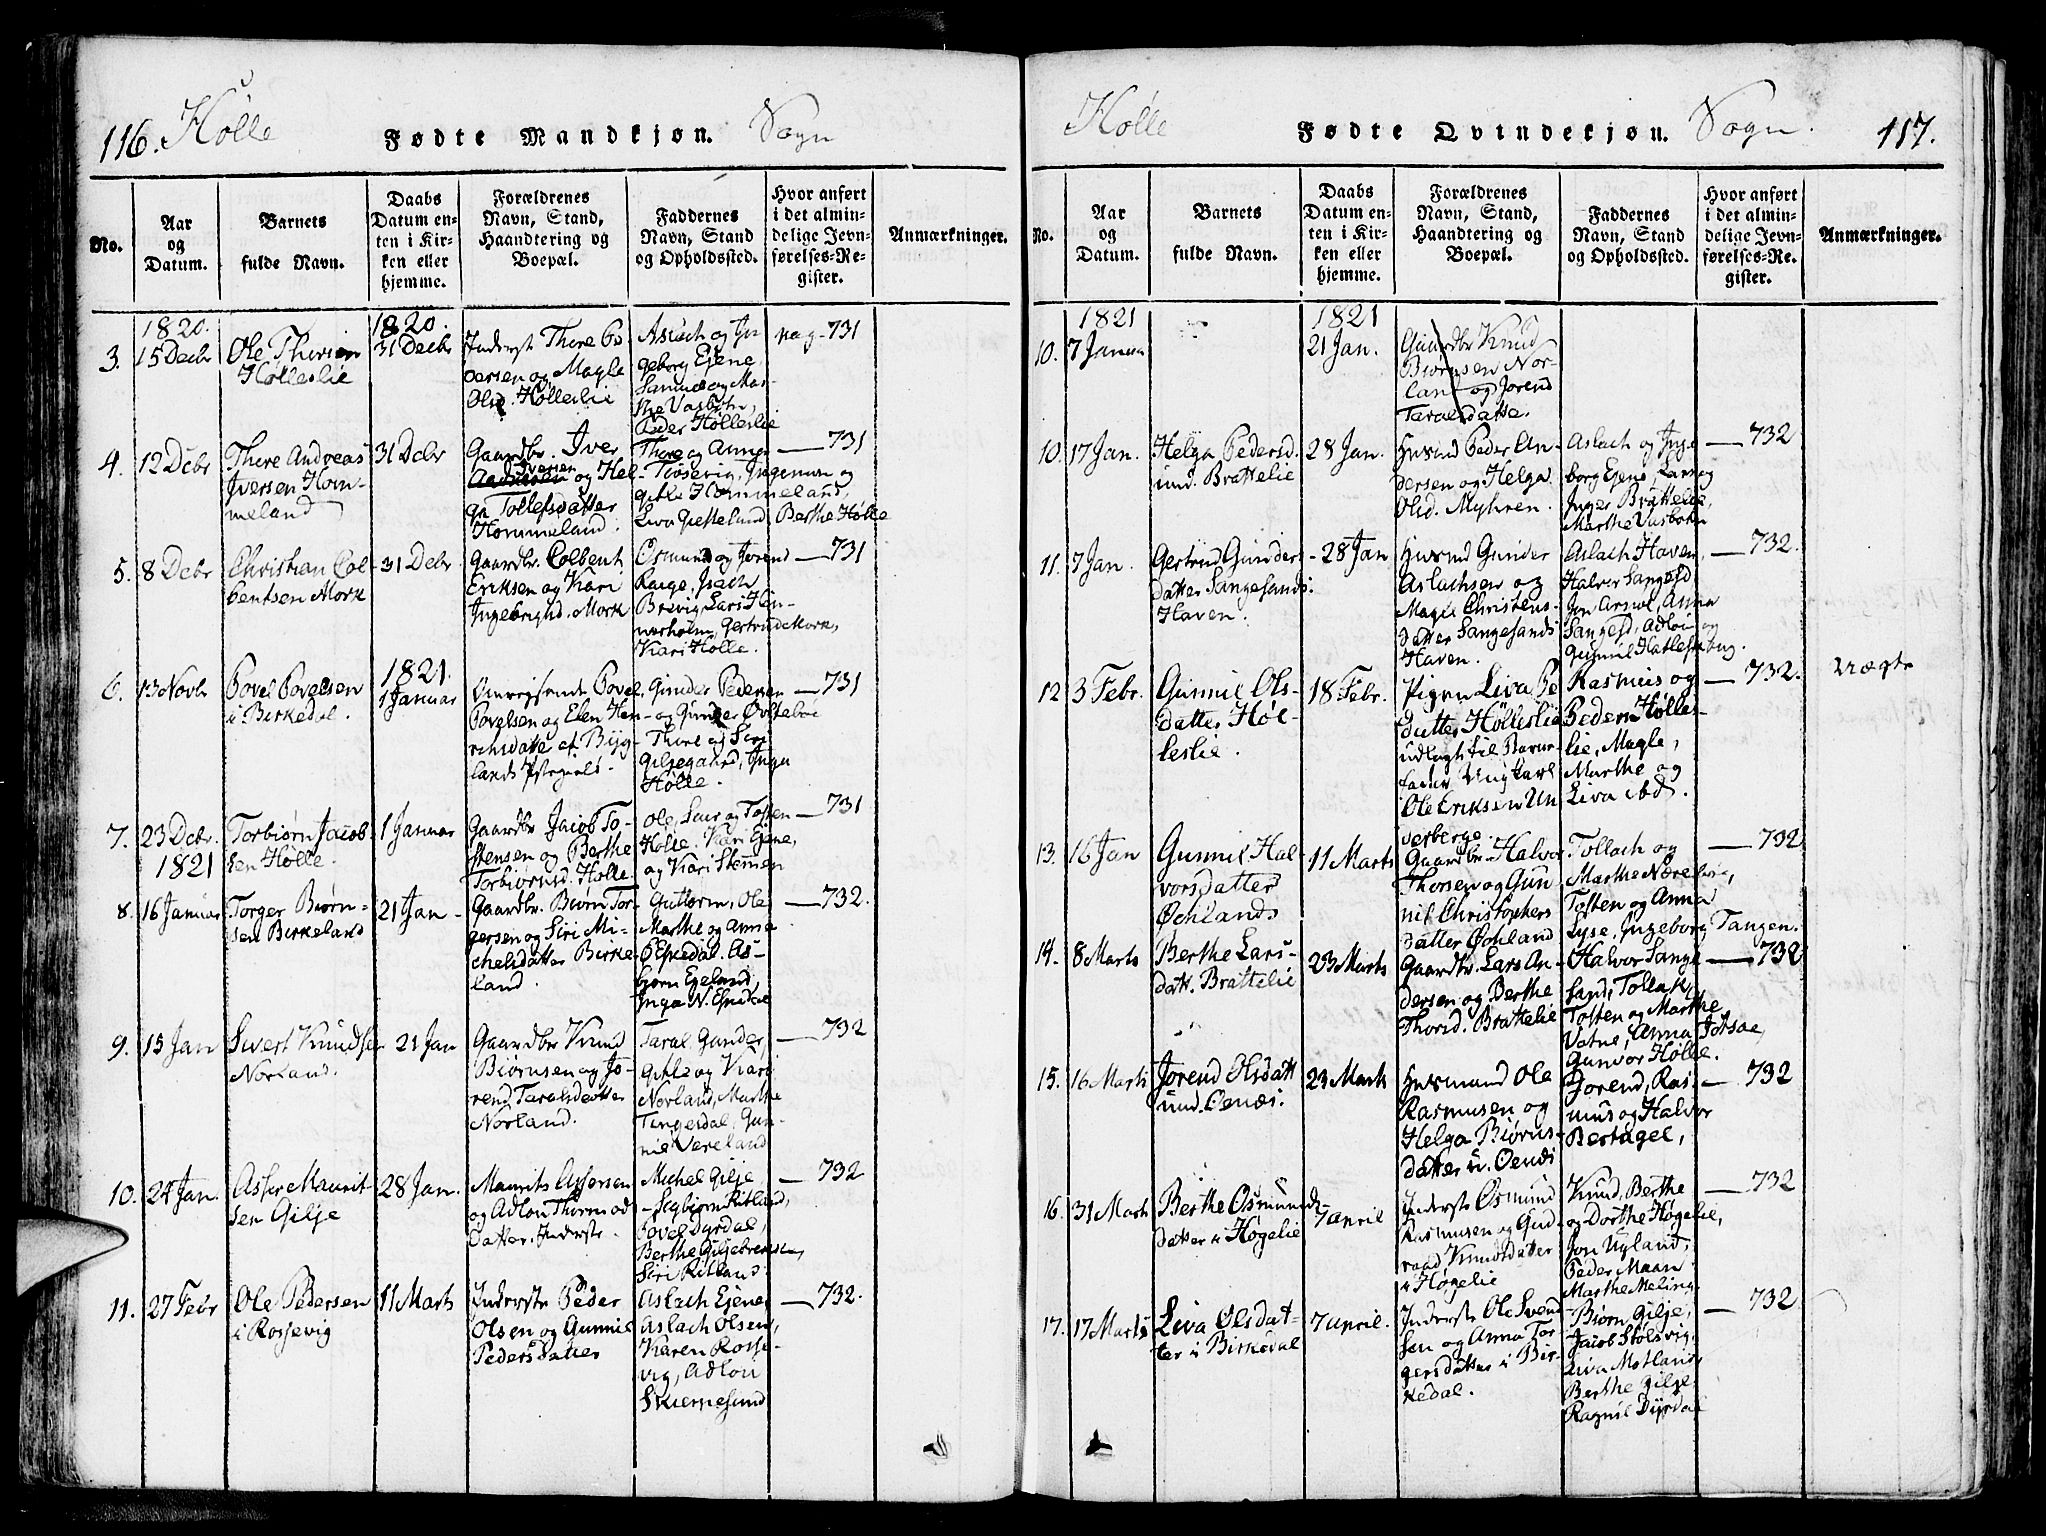 116. Hølle Fødte Mandkjøn. Sogn
No.
Aar og Datum.
Barnets fulde Navn.
Daabs Datum enten i Kirken eller hjemme.
Forældrenes Navn, Stand, Haandtering og Boepæl.
Faddernes Navn, Stand og Opholdssted.
Hvor anført i det almindelige Jevnførelses-Register.
Anmærkninger.
1820.
3. 15 Decbr
Ole Thersen
Hølleslie
1820.
31 Decbr
Inderst There Pe
dersen og Magle
Olsd. Hølleslie
Aslach og In
geborg Ejene,
Samuel og Mar-
the Vasbotn,
Peder Hølleslie
pag. 731
4. 12 Debr
There Andreas
Iversen Hom-
meland
31 Debr
Gaardbr. Iver
Iversen og Hel-
ga Tollefsdatter
Hommeland.
There og Anna
Tiøsevig, Ingeman og
Gitle Hommeland,
Liva Gitteland, Berthe Hølle
731
5. 8 Debr
Christian Col-
bentsen Mork
31 Debr
Gaardbr. Colbent
Eriksen og Kari
Ingebrigtsd. Mork
Osmund og Jorend
Rauge, Isach
Brevig, Lars Hen-
nerholm, Gertrud Mork,
Kari Hølle.
731
6. 13 Novbr
Povel Povelsen
i Birkedal.
1821.
1 Januar
Omreysende Povel
Povelsen og Elen Hen-
richsdatte af Byg-
lands Pstegield.
Gunder Pedersen
og Gunder Øvstebøe
Thore og Siri
Giljegaard, Inga
Hølle.
731
7. 23 Debr
Torbiørn Jacob-
sen Hølle.
1 Januar
Gaardbr Jacob To-
stensen og Berthe
Torbiørnsd. Hølle
Ole, Laur og Tosten
Hølle. Kari Ejene,
og Kari Stemen
731
1821
8. 16 Januar
Torger Biørn-
sen Birkeland
21 Jan
Gaardbr. Biørn Tor-
gersen og Siri Mi-
chelsdatter Birke-
land.
Guttorm, Ole
Marthe og Anna
Espedal. As-
biørn Egeland,
Inga N. Espedal
732.
9. 15 Jan
Sivert Knudsen
Norland.
21 Jan
Gaardbr Knud
Biørnsen og Jo-
rend Taralsdatter
Norland.
Taral Gander,
Gitle og Kari
Norland, Marthe
Tengesdal, Gun-
nil Vereland
732
10. 24 Jan.
Asser Maurit-
sen Gilje
28 Jan.
Maurits Assersen
og Adlou Thormod
datter, Inderste.
Michel Gilje
Segbiørn Ritland,
Povel Dyrdal,
Berthe Giljebrekken,
Siri Ritland.
732
11. 27 Febr
Ole Pedersen
i Rossevig
11 Marts
Inderste Peder
Olsen og Gunnil
Pedersdatter
Aslach Ejene,
Aslach Olsen,
Karen Rosse-
vig, Adlou
Skiernesund
732.
Hølle Fødte Qvindekjøn. Sogn. 117.
No.
Aar og Datum.
Barnets fulde Navn.
Daabs Datum enten i Kirken eller hjemme.
Forældrenes Navn, Stand, Haandtering og Boepæl.
Faddernes Navn, Stand og Opholdssted.
Hvor anført i det almindelige Jevnførelses-Register.
Anmærkninger.
1821
10. 7 Januar
1821
21 Jan.
Gaardbr Knud
Biørnsen Nor-
land og Jorend
Taralsdatte.
10. 17 Jan.
Helga Pedersd.
und. Brattelie
28 Jan.
Husmd Peder An-
dersen og Helga
Olsd. Myhren.
Aslach og Inge
borg Ejene, Lars og
Inger Brattelie,
Marthe Vasbotn
732
11. 7 Jan.
Gertrud Gunders-
datter Sangesands
Haven.
28 Jan
Husmd Gunder
Aslachsen og
Magle Christens-
datter Sangesands
Haven.
Aslach Haven,
Halvor Sangesd,
Jon Arsvol, Anna
Sangesd, Adlou og
Gunnil Hatleskaug.
732.
12 3 Febr.
Gunnil Ols-
datter Høl-
leslie.
18 Febr.
Pigen Liva Pe
dsdatter Hølleslie
udlagt til Barne-
fader Ungkarl
Ole Eriksen Un
derberge.
Rasmus og
Peder Hølles-
lie, Magle,
Marthe og
Liva ibd.
732.
Uægte
13. 16 Jan
Gunnil Hal
vorsdatter
Øchlands
11 Marts
Gaardbr Halvor
Thorsen og Gun
nil Christophers
datter Øchland
Tollach og
Marthe Nærebøe,
Tosten og Anna
Lyse, Ingeborg Tangen.
732
14. 8 Marts
Berthe Lars-
datt. Brattelie
23 Marts
Gaardbr. Lars An-
dersen og Berthe
Thorsd. Brattelie
Halvor Sange
sand, Tollak,
Tosten og Marthe
Vatne, Anna Jøssae,
Gunvor Hølle.
732
15. 16 Marts
Jorend Olsdatt
und. Oenæs.
23 Marts
Husmand Ole
Rasmusen og
Helga Biørns-
datter u. Oenæs
Jorend, Ras-
mus og Halvor
Bergagel,
732
16. 31 Marts
Berthe Osmunds-
datter i Høgelie
7 April
Inderste Osmund
Rasmusen og Gud-
raad Knudsdatter
i Høgelie
Knud, Berthe
og Dorthe Høgelie,
Jon Uyland,
Peder Maan
Marthe Meling
732
17. 17 Marts
Liva Olsdat-
ter i Birkedal
7 April.
Inderste Ole Svend
sen og Anna Tor-
gersdatter i Bir-
kedal.
Biørn Gilje,
Jacob Stølsvig,
Liva Motland,
Berthe Gilje
Ragnil Dyrdal
732